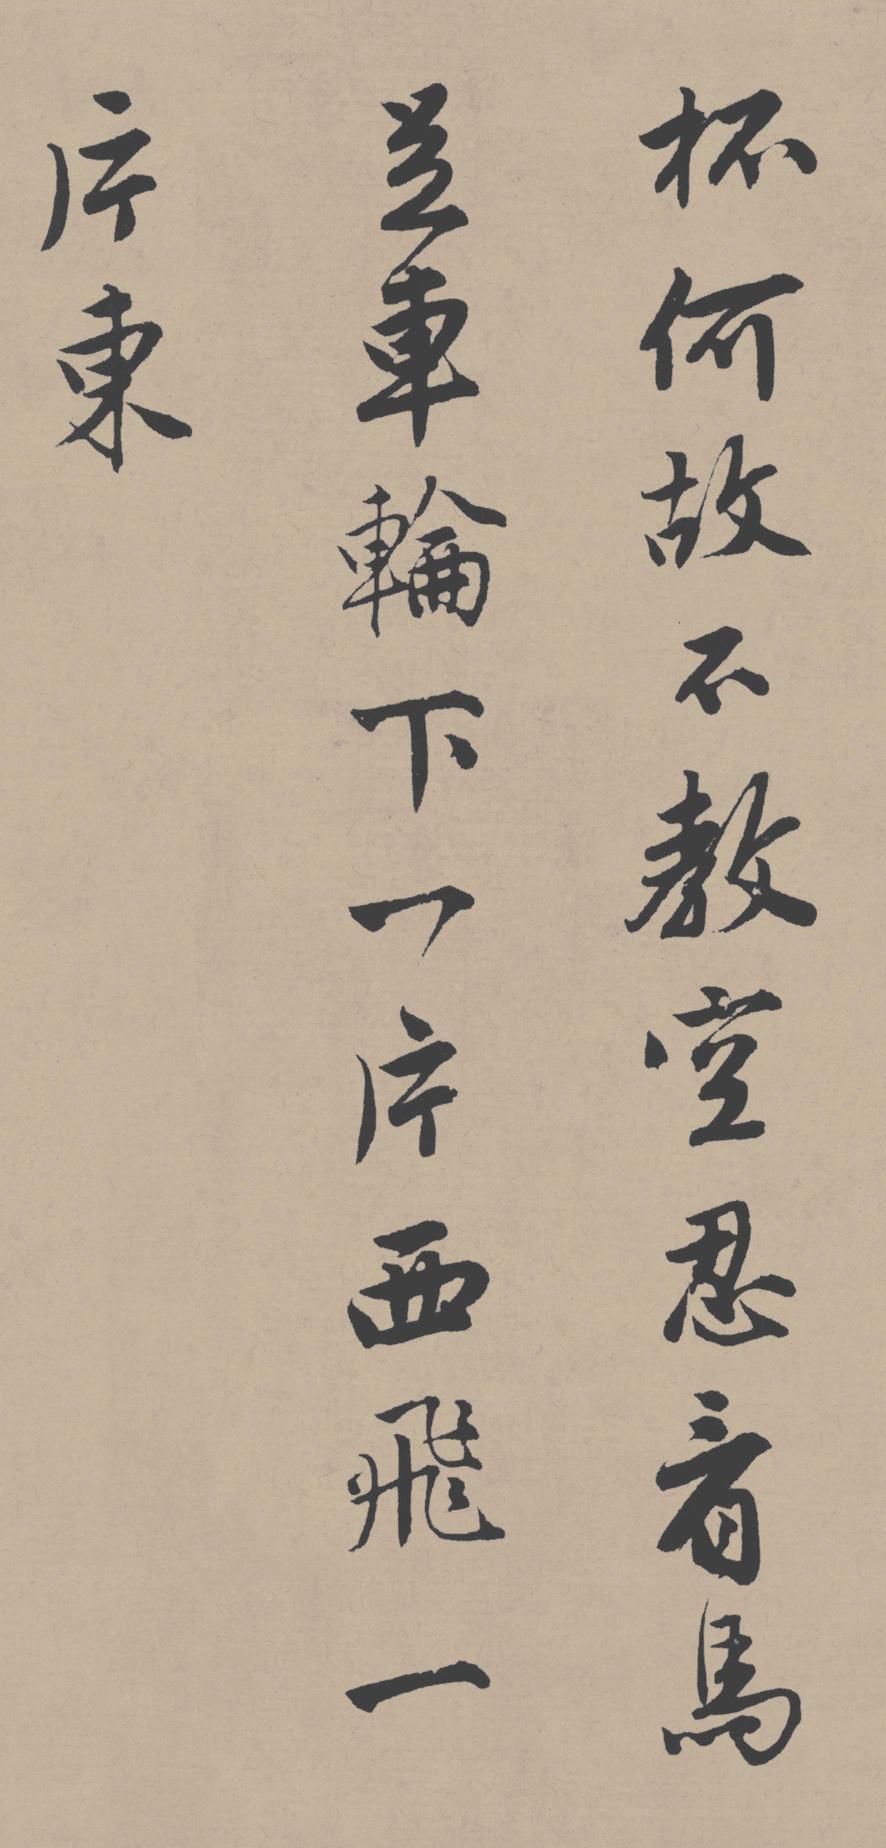 杯何故不教空忍看馬
足車輪下一片西飛一
片東